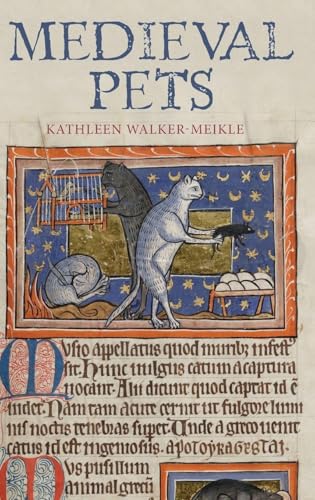 MEDIEVAL
PETS
KATHLEEN WALKER-MEIKLE
Musio appellatus quod murib; infest
sit. Hunc uulgus catum a captura
uocant. Alii dicunt quod captat id ē
uidet. Nam tam acute cernit ut fulgore lumi
nis noctis tenebras superet. Unde a greco uenit
catus id est ingeniosus.
Mus pusillum
animal grecū